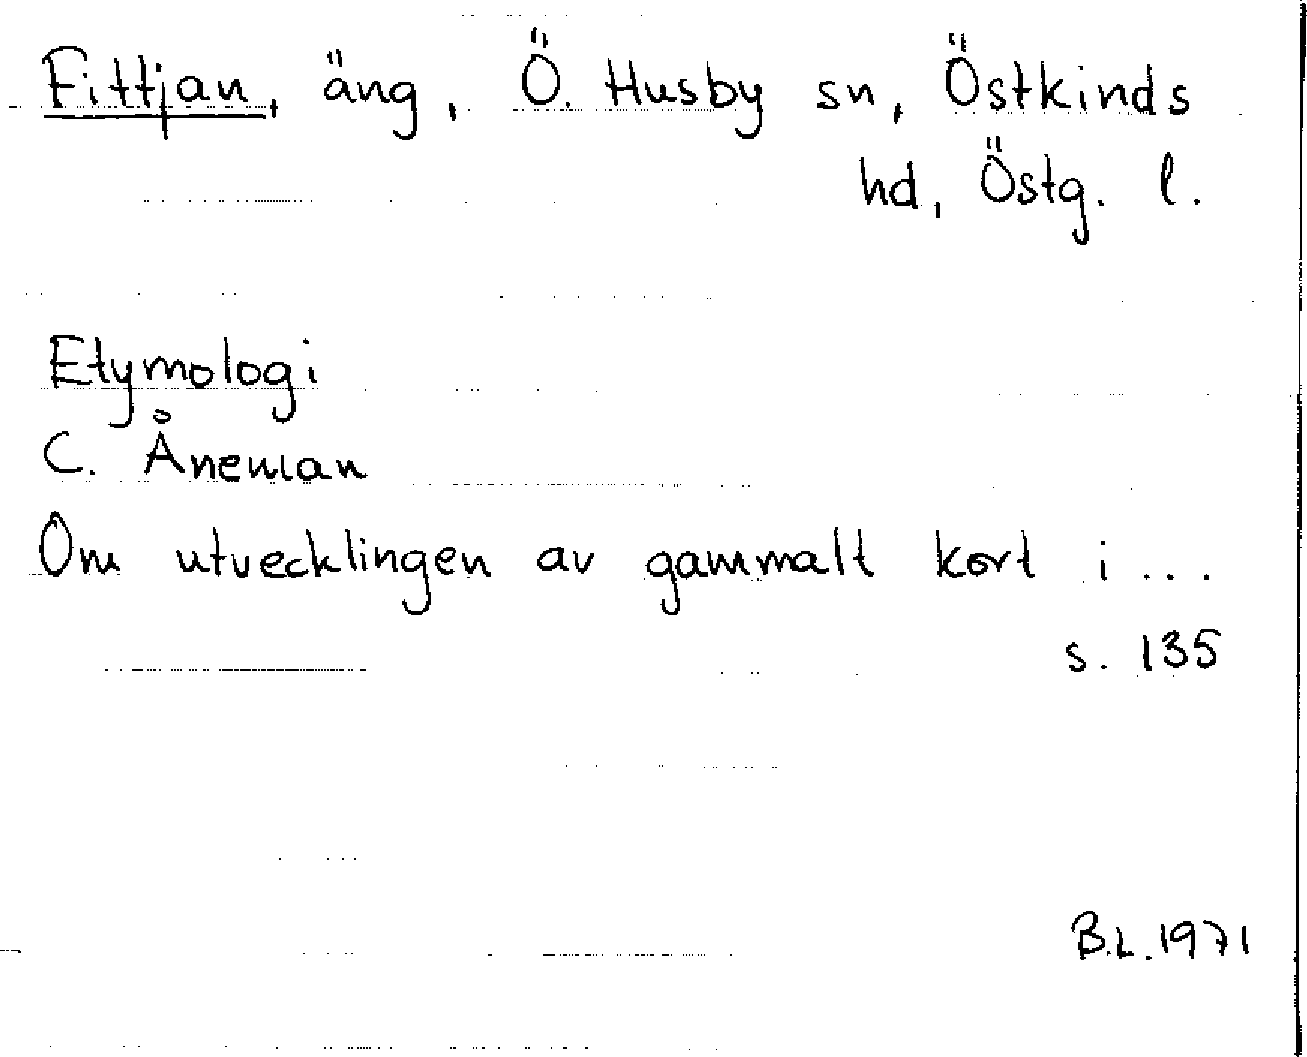 Fittjan, äng, Ö. Husby sn, Östkinds
hd, Östg. l.
Etymologi
C. Åneman
Om utvecklingen av gammalt kort i ...
s. 135
B.L. 1971